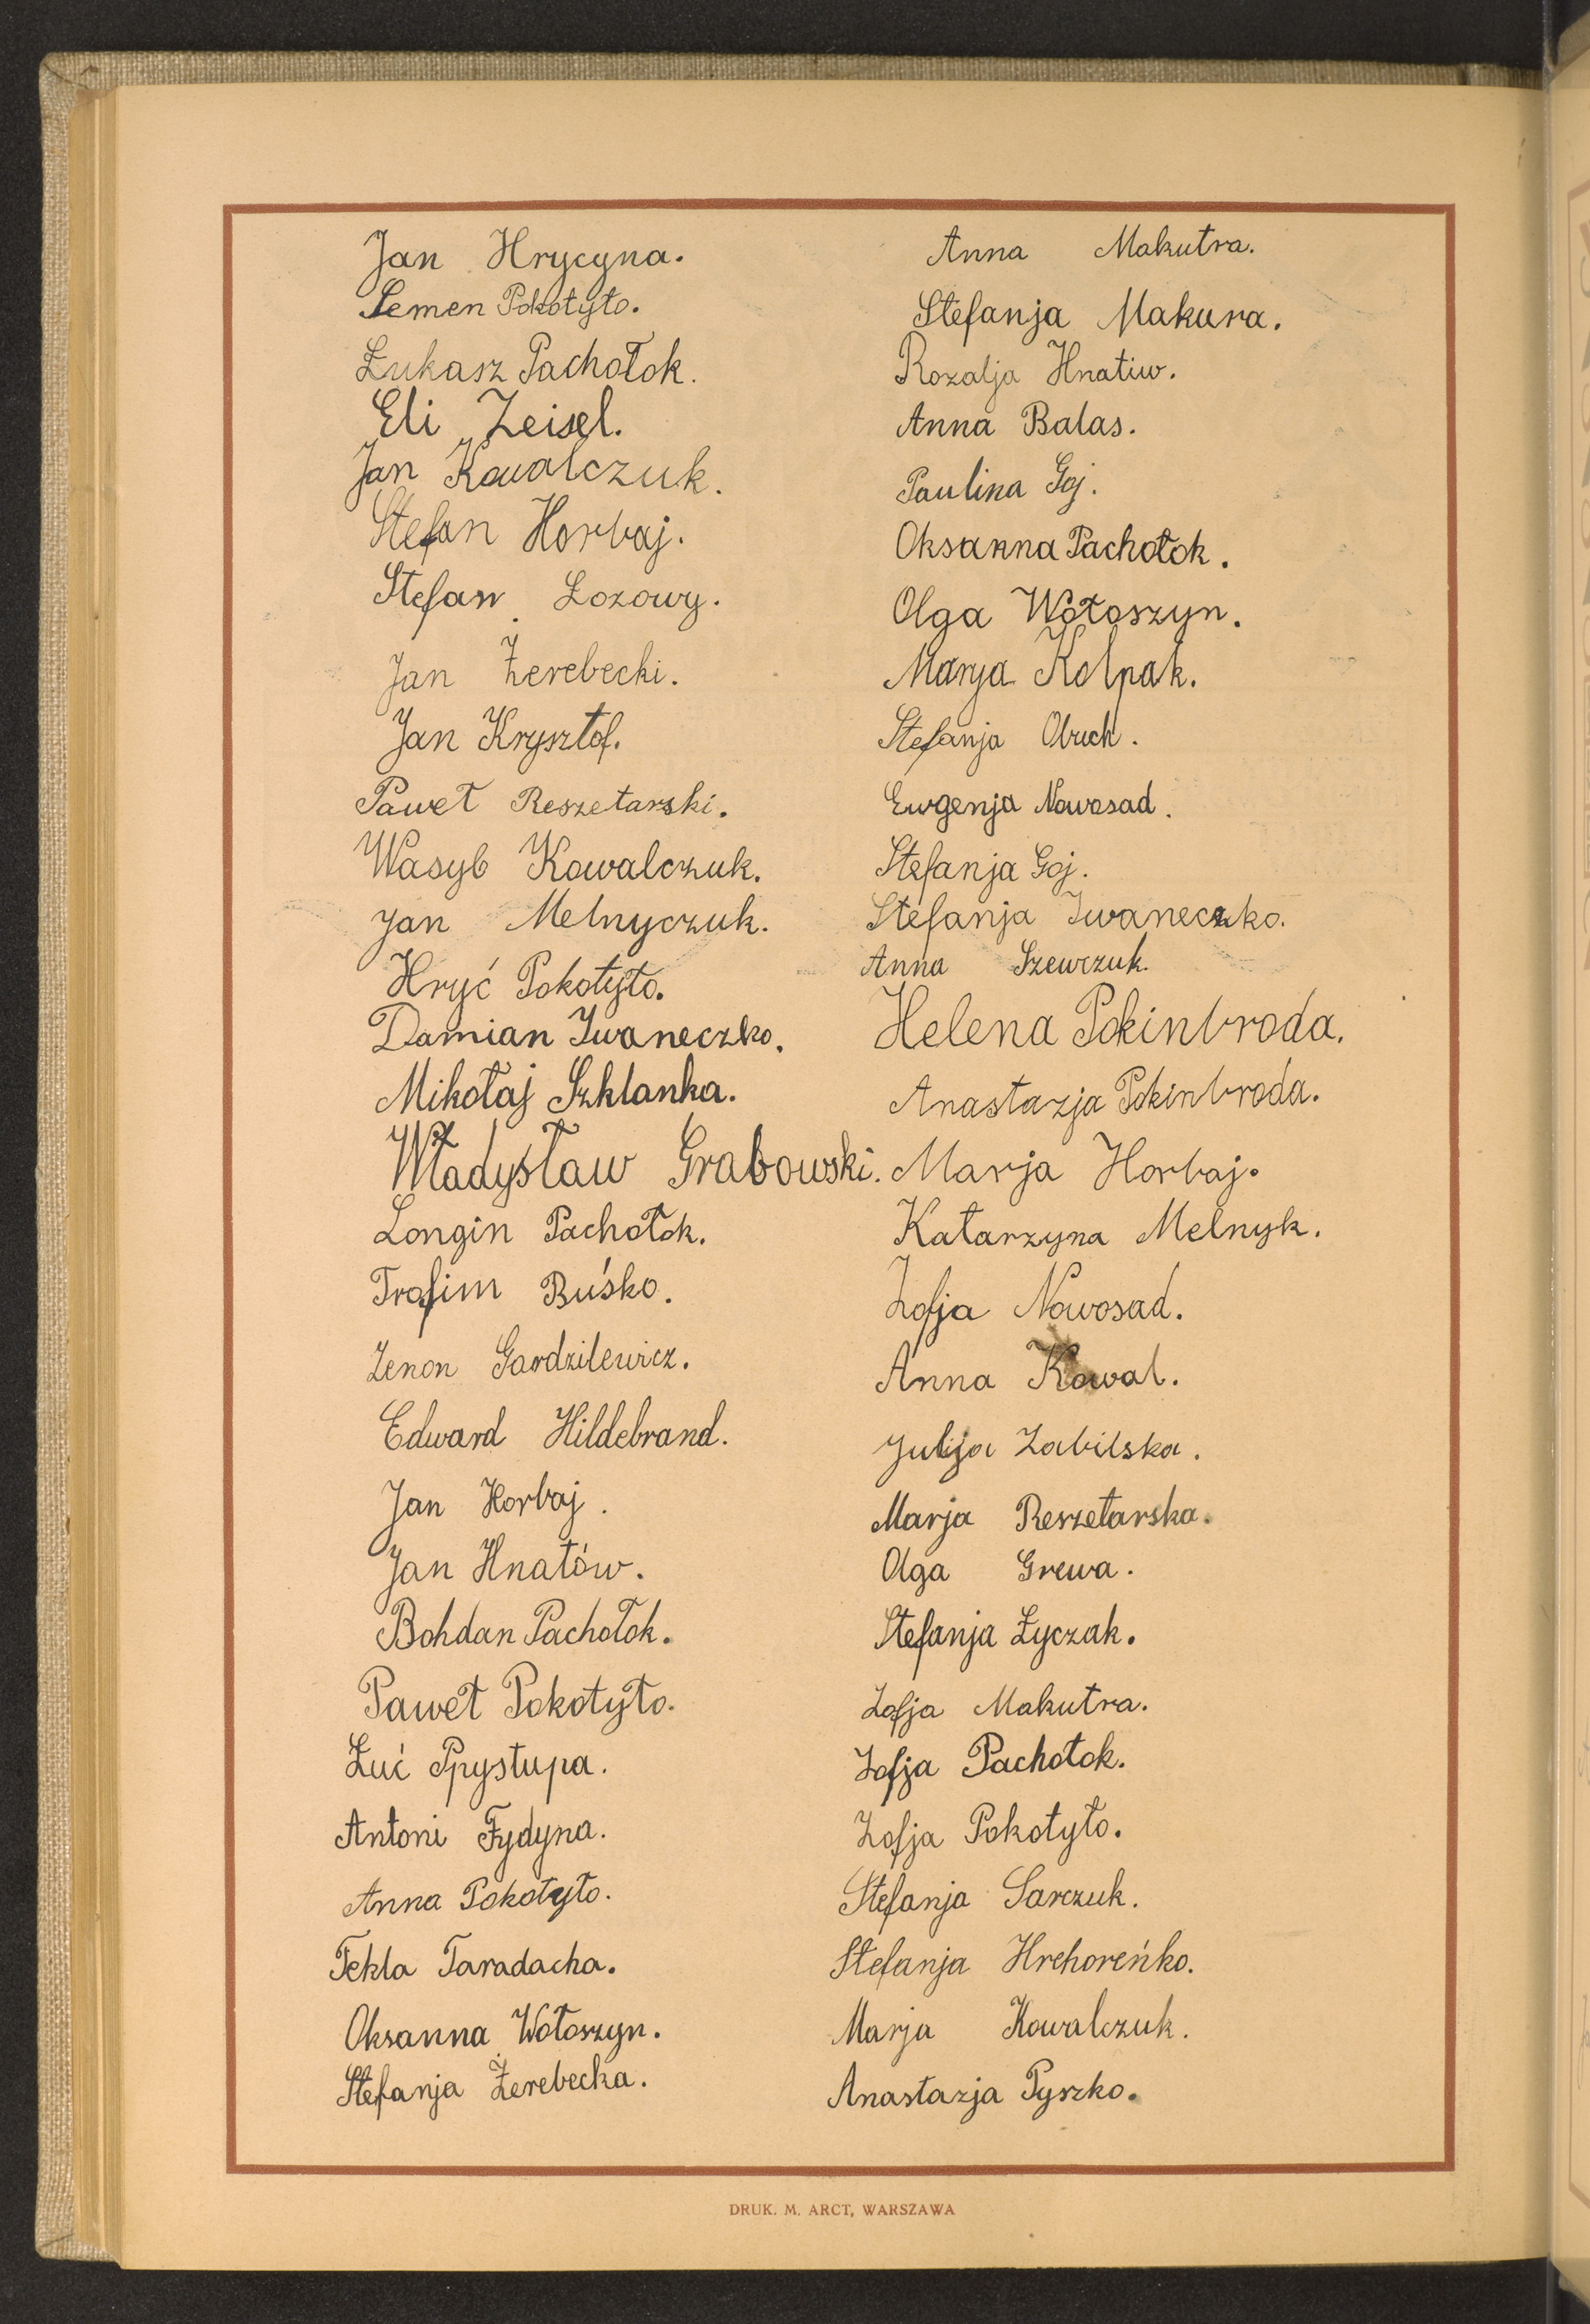 Jan Hrycyna.
Semen Pokotyło.
Łukasz Pachołok.
Eli Zeisel.
Jan Kowalczuk.
Stefan Horbaj.
Stefan Łozowy.
Jan Żerebecki.
Jan Krysztof.
Paweł Reszetarski.
Wasyl Kowalczuk.
Jan Melnyczuk.
Hryć Pokotyło.
Damian Iwaneczko.
Mikołaj Szklanka.
Władysław Grabowski.
Longin Pachołok.
Trofim Buśko.
Zenon Gardzilewicz.
Edward Hildebrand.
Jan Horbaj.
Jan Hnatów.
Bohdan Pachołok.
Paweł Pokotyło.
Łuć Prystupa.
Antoni Fydyna.
Anna Pokotyło.
Tekla Taradacha.
Oksanna Wołoszyn.
Stefanja Żerebecka.
Anna Makutra.
Stefanja Makura.
Rozalja Hnatiw.
Anna Balas.
Paulina Goj.
Oksanna Pachołok.
Olga Wołoszyn.
Marja Kolpak.
Stefanja Obuch.
Ewgenja Nowosad.
Stefanja Goj.
Stefanja Iwaneczko.
Anna Szewczuk.
Helena Pokinbroda.
Anastazja Pokinbroda.
Marja Horbaj.
Katarzyna Melnyk.
Zofja Nowosad.
Anna Kowal.
Julija Zabilska.
Marja Reszetarska.
Olga Grewa.
Stefanja Łyczak.
Zofja Makutra.
Zofja Pachołok.
Zofja Pokotyło.
Stefanja Sarczuk.
Stefanja Hrehoreńko.
Marja Kowalczuk.
Anastazja Pyszko.
DRUK. M. ARCT, WARSZAWA